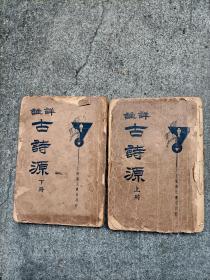 詳註
古詩源
上冊
詳註
古詩源
下冊